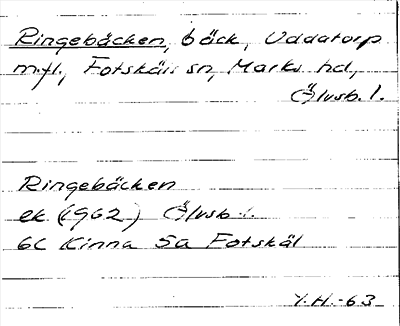 Ringebäcken, bäck, Uddatorp
m.fl., Fotskäls sn, Marks hd,
Älvsb. l.
Ringebäcken
ek. (1962) Älvsb. l.
6C Kinna 5a Fotskäl
Y.H.-63